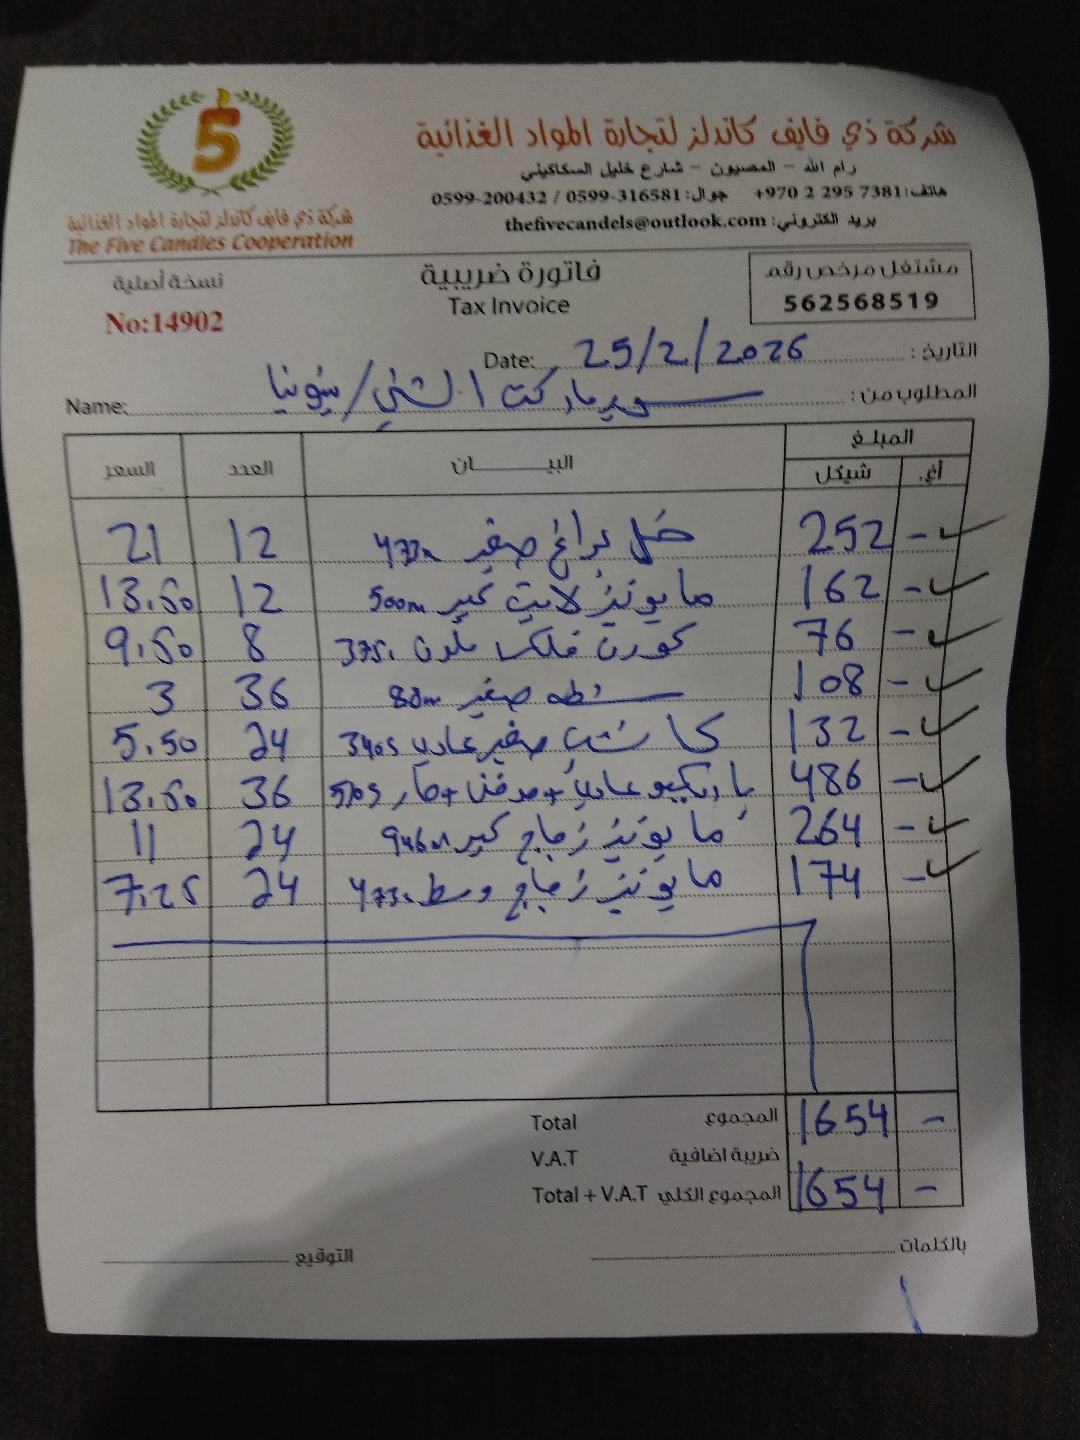 5
شركة ذي فايف كاندلز لتجارة المواد الغذائية
رام الله - المصيون - شارع خليل السكاكيني
هاتف: +970 2 295 7381 جوال: 0599-316581 / 0599-200432
بريد الكتروني: thefivecandels@outlook.com
شركة ذي فايف كاندلز لتجارة المواد الغذائية
The Five Candles Cooperation
مشتغل مرخص رقم
562568519
فاتورة ضريبية
Tax Invoice
نسخة أصلية
No:14902
التاريخ : 25/2/2026 Date:
المطلوب من : سوبر ماركت الشني / Name:
المبلغ
أغ. شيكل البيــــــــان العدد السعر
- 252 خل صغير 473m 12 21
- 162 مايونيز لايت كبير 500m 12 13.50
- 76 كورن فلكس ملون 375 8 9.50
- 108 شطه صغير 80m 36 3
- 132 كاتشب صغير عادي 340g 24 5.50
- 486 باربكيو عادي + مدخن + حار 510g 36 13.50
- 264 مايونيز زجاج كبير 946m 24 11
- 174 مايونيز زجاج وسط 473 24 7.25
- 1654 المجموع Total
ضريبة اضافية V.A.T
- 1654 المجموع الكلي Total + V.A.T
بالكلمات التوقيع